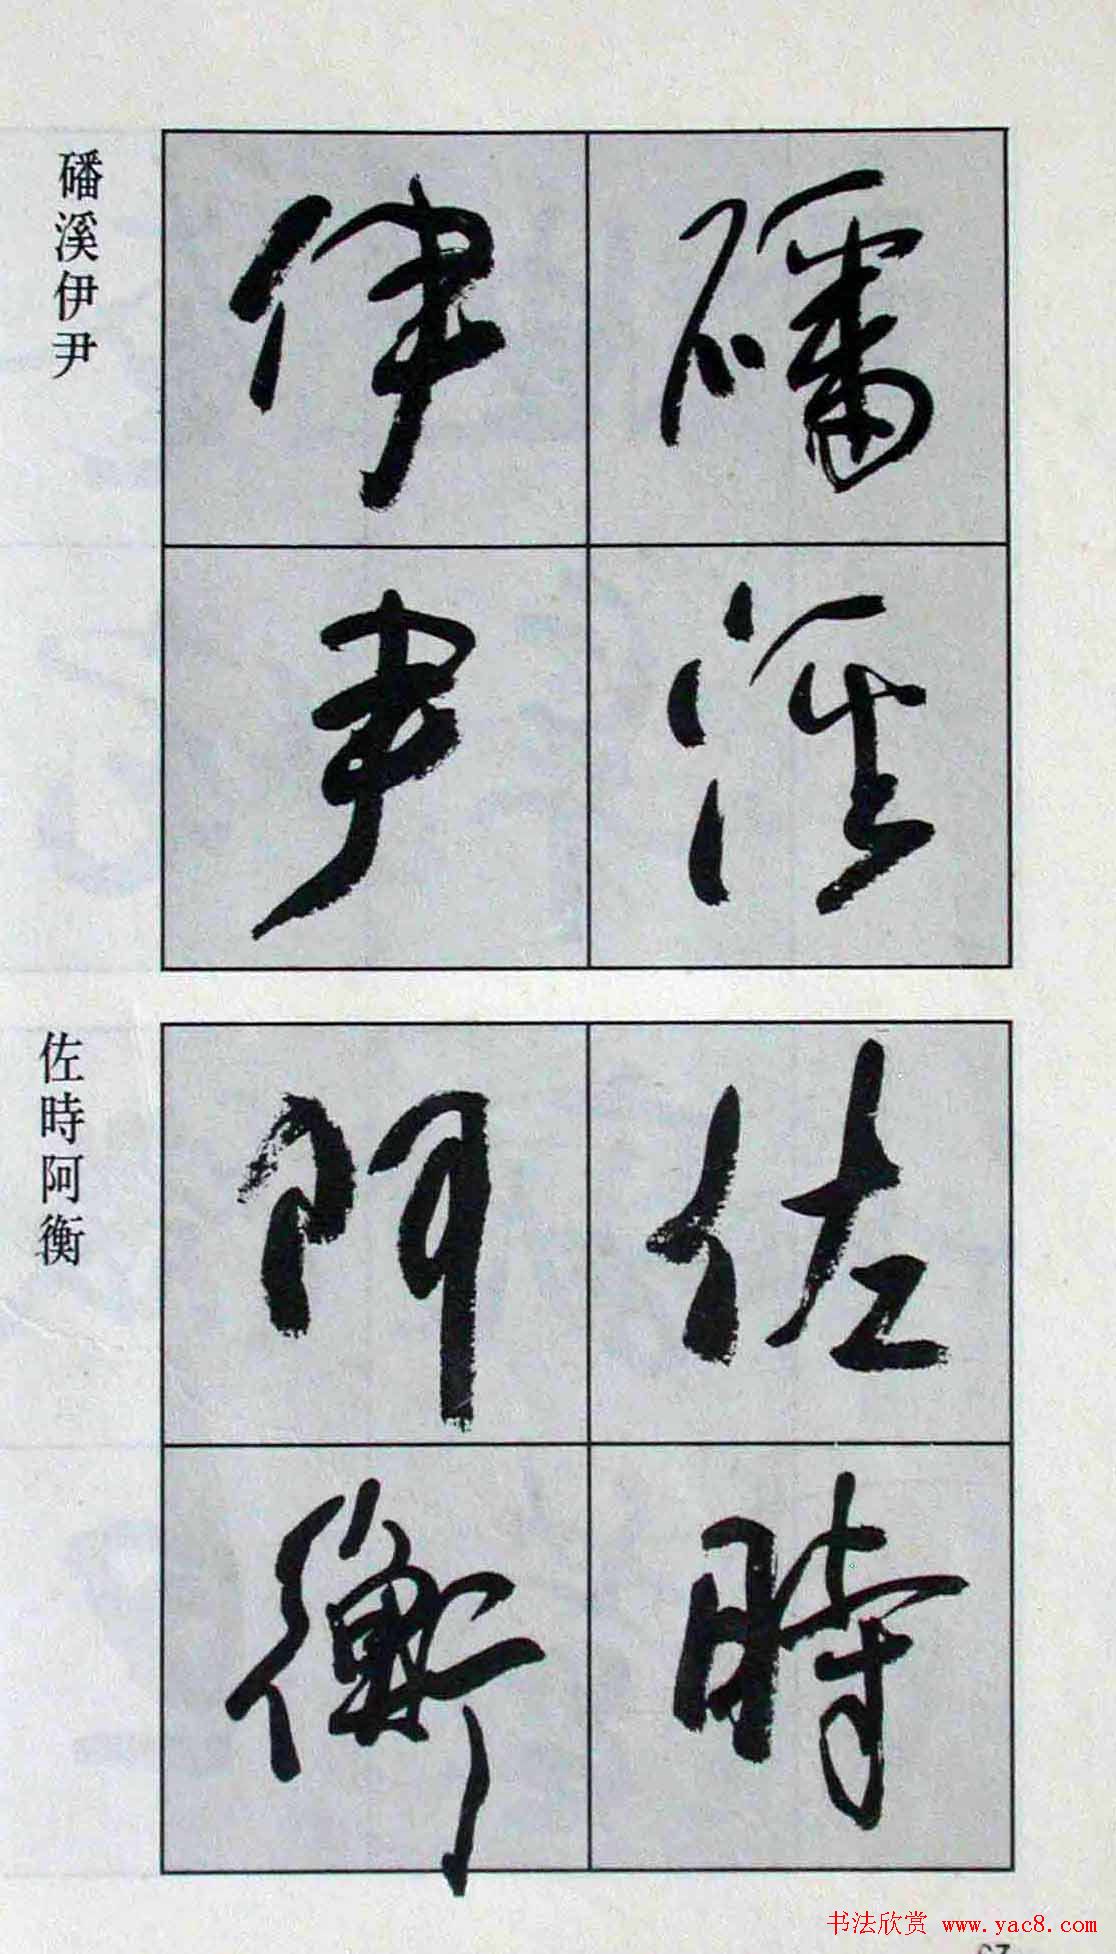 磻溪
伊尹
磻溪伊尹
佐時
阿衡
佐時阿衡
书法欣赏 www.yac8.com